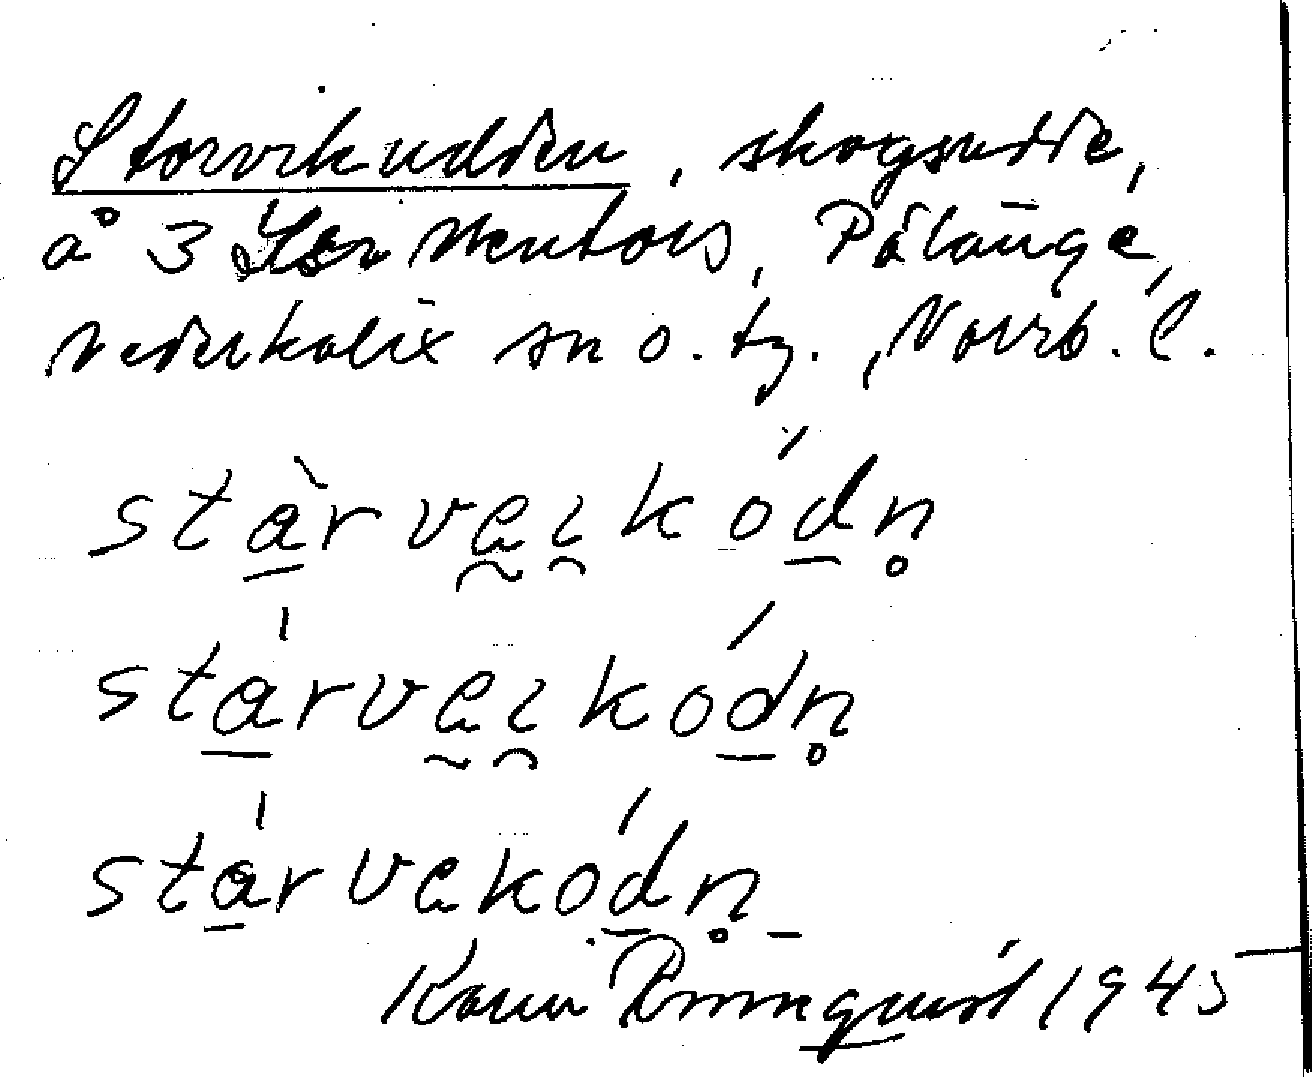 Storvikudden, skogsudde,
å 3 Mentois, Pålänge,
Nederkalix sn o. tg., Norrb. l.
stàrvei̯kódn̥
stárvei̯kódn̥
stárvekódn̥
Karin Rönnquist 1945